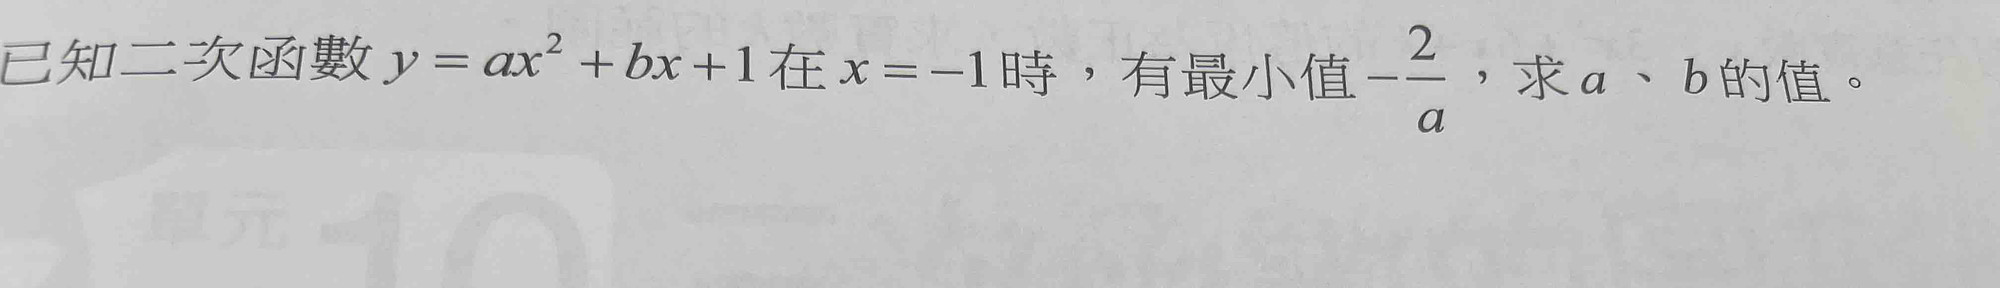 已知二次函數 y = ax² + bx + 1 在 x = −1 時，有最小值 −2/a，求 a 、 b 的值。
單元 10